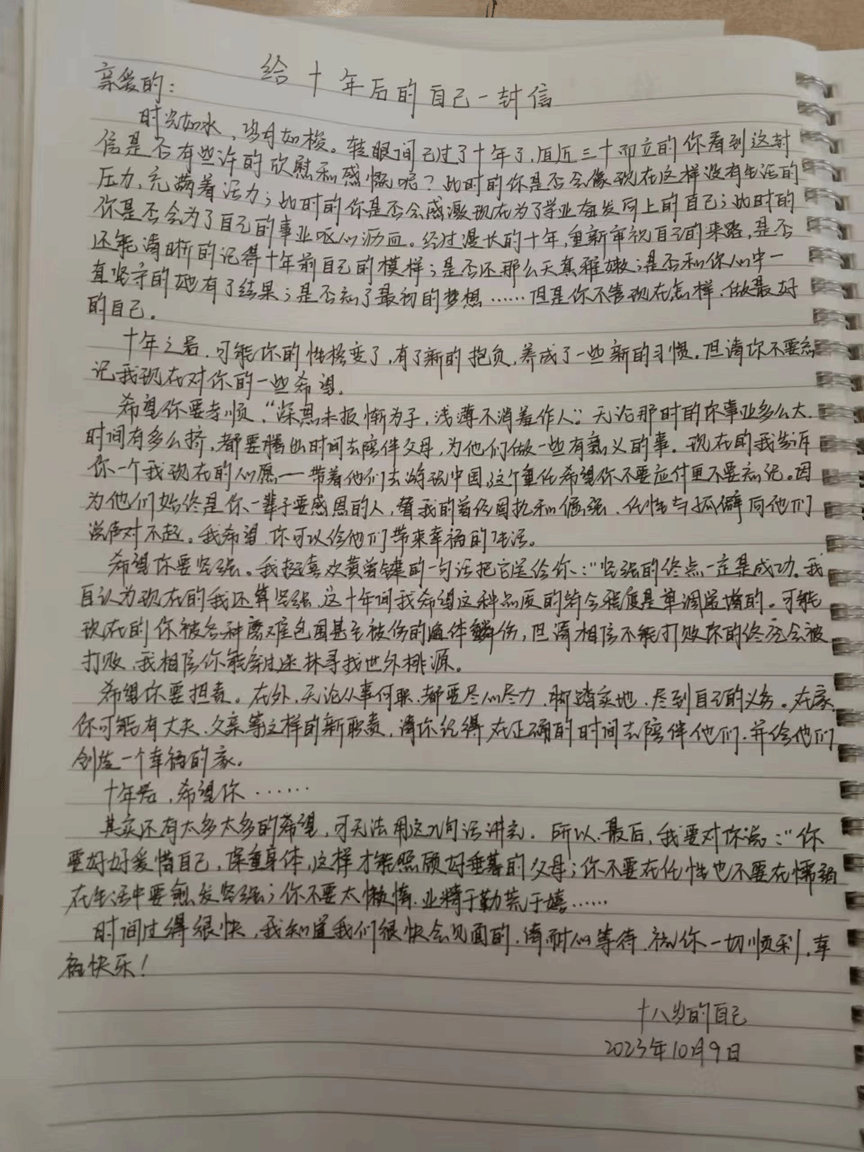 给十年后的自己一封信
亲爱的:
时光如水,岁月如梭。转眼间已过了十年了,值近三十而立的你看到这封
信是否有些许的欣慰和感慨呢?此时的你是否会像现在这样没有生活的
压力,充满着活力;此时的你是否会感激现在为了学业奋发向上的自己;此时的
你是否会为了自己的事业呕心沥血。经过漫长的十年,重新审视自己的来路,是否
还能清晰的记得十年前自己的模样;是否还那么天真稚嫩;是否和你心中一
直坚守的她有了结果;是否忘了最初的梦想……但是你不管现在怎样,做最好
的自己。
十年之后,可能你的性格变了,有了新的抱负,养成了一些新的习惯。但请你不要忘
记我现在对你的一些希望。
希望你要孝顺。“深恩未报惭为子,浅薄不消羞作人”。无论那时的你事业多么大,
时间有多么挤,都要腾出时间去陪伴父母,为他们做一些有意义的事。现在的我告诉
你一个我现在的心愿——带着他们去游玩中国,这个重任希望你不要应付更不要忘记。因
为他们始终是你一辈子要感恩的人,替我的曾经固执和倔强,任性与孤僻向他们
说声对不起。我希望你可以给他们带来幸福的生活。
希望你要坚强。我挺喜欢黄曾键的一句话把它送给你:“坚强的终点一定是成功。我
自认为现在的我还算坚强,这十年间我希望这种品质的符合强度是单调递增的。可能
现在的你被各种磨难包围甚至被伤的遍体鳞伤,但请相信不能打败你的终究会被
打败,我相信你能穿过迷林寻找世外桃源。
希望你要担责。在外,无论从事何职,都要尽心尽力,脚踏实地,尽到自己的义务。在家
你可能有丈夫、父亲等这样的新职责,请你记得在正确的时间去陪伴他们,并给他们
创造一个幸福的家。
十年后,希望你……
其实还有太多太多的希望,可无法用这几句话讲完。所以,最后,我要对你说:“你
要好好爱惜自己,保重身体,这样才能照顾好垂暮的父母;你不要在任性也不要在懦弱
在生活中要愈发坚强;你不要太懒惰,业精于勤荒于嬉……
时间过得很快,我知道我们很快会见面的,请耐心等待,祝你一切顺利,幸
福快乐!
十八岁的自己
2023年10月9日